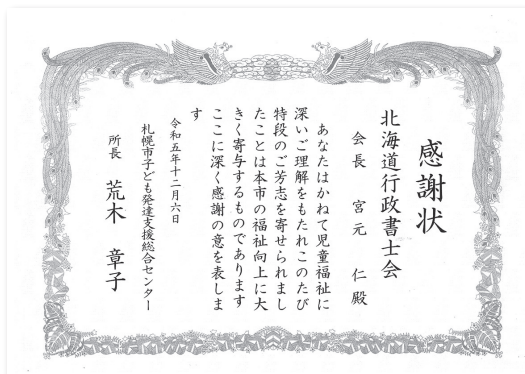 感謝状
北海道行政書士会
会長 宮元 仁 殿
あなたはかねて児童福祉に
深いご理解をもたれこのたび
特段のご芳志を寄せられまし
たことは本市の福祉向上に大
きく寄与するものであります
ここに深く感謝の意を表しま
す
令和五年十二月六日
札幌市子ども発達支援総合センター
所長 荒木 章子